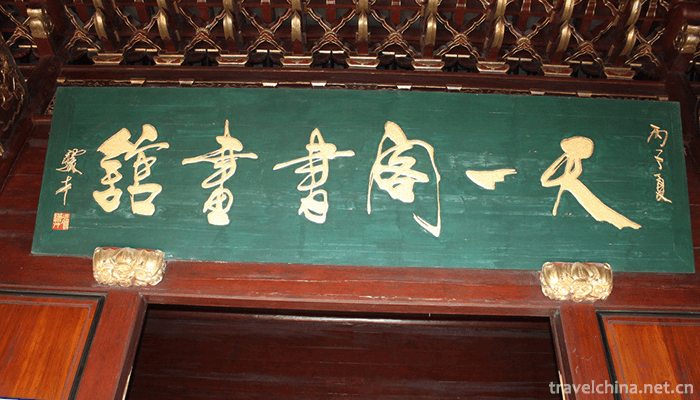 丙子夏
天一阁書畫舘
travelchina.net.cn